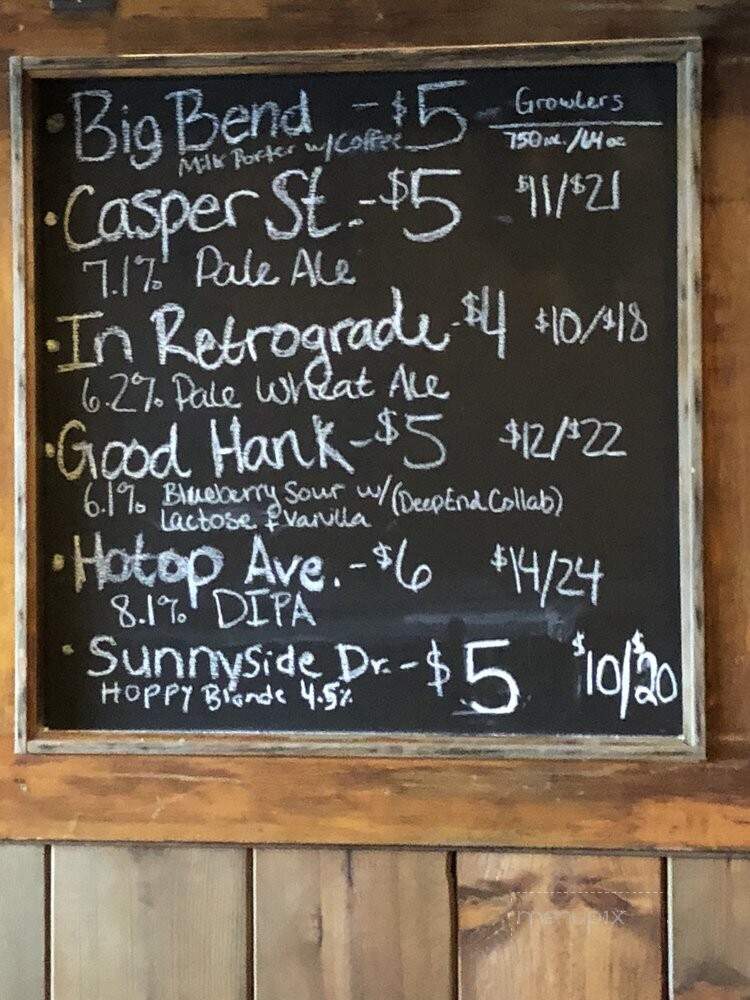 Big Bend - $5 Growlers
Milk Porter w/Coffee 750 mL/64 oz
Casper St. - $5 $11/$21
7.1% Pale Ale
In Retrograde - $4 $10/$18
6.2% Pale Wheat Ale
Good Hank - $5 $12/$22
6.1% Blueberry Sour w/ (DeepEnd Collab)
Lactose & Vanilla
Hotop Ave. - $6 $14/24
8.1% DIPA
Sunnyside Dr. - $5 $10/$20
HOPPY Blonde 4.5%
menupix